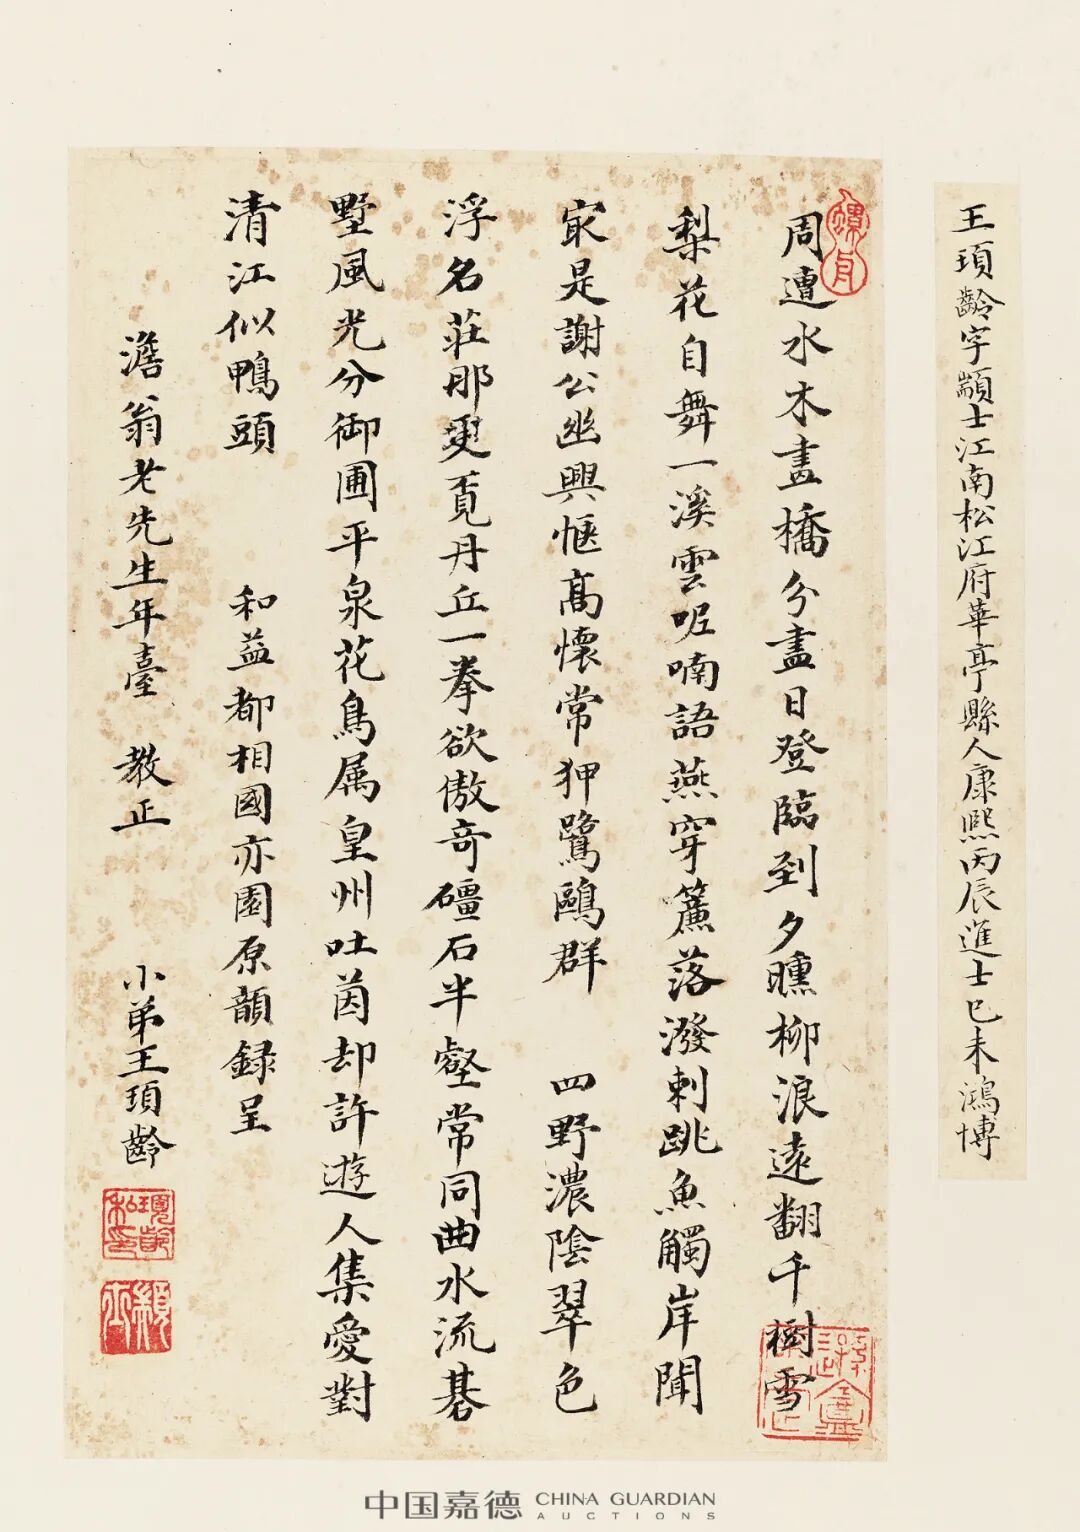 王頊齡字顓士江南松江府華亭縣人康熙丙辰進士己未鴻博
周遭水木畫橋分盡日登臨到夕曛柳浪遠翻千樹雪
梨花自舞一溪雲呢喃語燕穿簾落潑剌跳魚觸岸聞
㝡是謝公幽興愜高懷常狎鷺鷗群 四野濃陰翠色
浮名莊那更覓丹丘一拳欲傲奇礓石半壑常同曲水流碁
墅風光分御圃平泉花鳥属皇州吐茵却許遊人集愛對
清江似鴨頭 和益都相國亦園原韻録呈
澹翁老先生年臺 教正 小弟王頊齡
中国嘉德 CHINA GUARDIAN
AUCTIONS